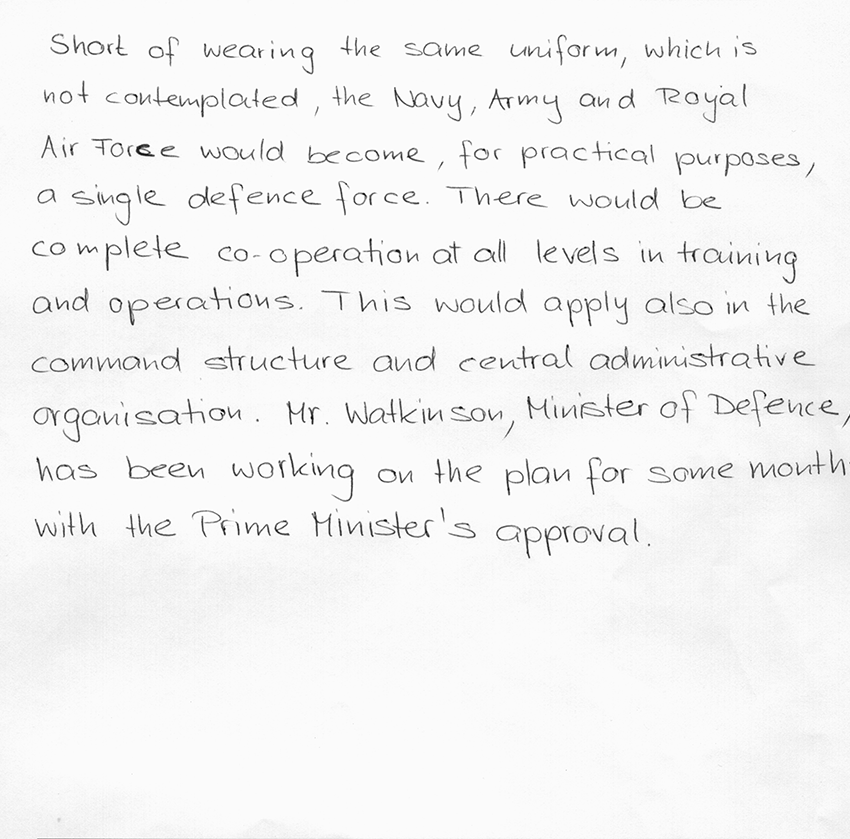 Short of wearing the same uniform, which is
not contemplated, the Navy, Army and Royal
Air Force would become, for practical purposes,
a single defence force. There would be
complete co-operation at all levels in training
and operations. This would apply also in the
command structure and central administrative
organisation. Mr. Watkinson, Minister of Defence,
has been working on the plan for some month
with the Prime Minister's approval.